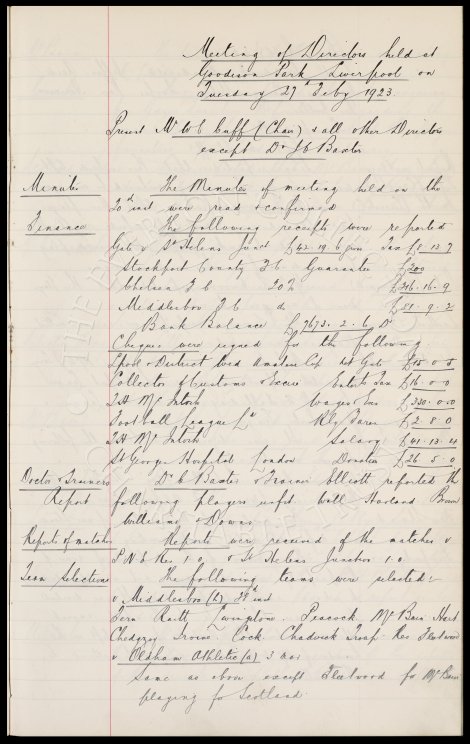 Meeting of Directors held at
Goodison Park Liverpool on
Tuesday 27th Feby 1923.
Present Mr W C Cuff (Chair) & all other Directors
except Dr J C Baxter
Minutes
The Minutes of meeting held on the
20th inst were read & confirmed
Finance
The following receipts were reported
Gate v St Helens Junct £42.19.6 gross Tax £8.13.7
Stockport County F C Guarantee £200
Chelsea F C 20% £216.16.9
Middlesbro F C do £81.9.2
Bank Balance £7673.2.6 Dr
Cheques were signed for the following
Lpool & District Wed Amateur Cup Gate £15.0.5
Collector of Customs & Excise Enterts Tax £16.0.0
T H McIntosh Wages Exs £330.0.0
Football League Ld Rly Fares £2.8.0
T H McIntosh Salary £41.13.4
St Georges Hospital London Donation £26.5.0
Doctor & Trainers
Report
Dr C Baxter & Trainer Elliott reported the
following players unfit Wall Harland Brown
Williams & Downs
Reports of matches
Reports were received of the matches v
P N E Res 1.0 & St Helens Junction 1.0
Team Selections
The following teams were selected:-
v Middlesbro (h) inst
Fern Raitt Livingstone Peacock McBain Hart
Chedgzoy Irvine Cock Chadwick Troup Res Fleetwood
v Oldham Athletic (a) 3 Mar
Same as above except Fleetwood for McBain
playing for Scotland